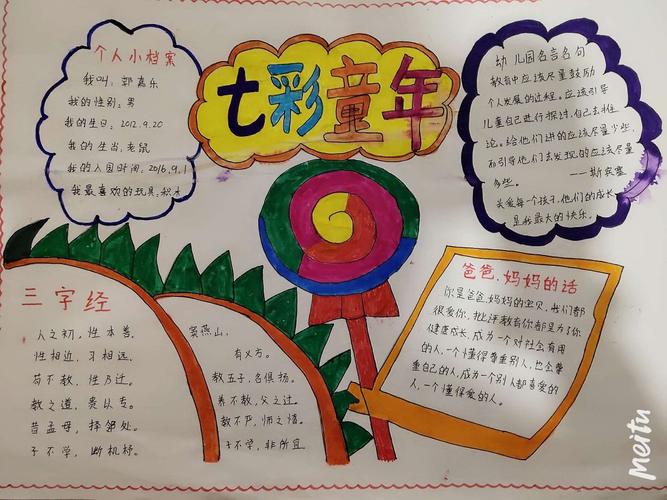 七彩童年
个人小档案
我叫:郭嘉乐
我的性别:男
我的生日:2012.9.20
我的生肖:老鼠
我的入园时间:2016.9.1
我最喜欢的玩具:积木
幼儿园名言名句
教育中应该尽量鼓励
个人发展的过程。应该引导
儿童自己进行探讨,自己去推
论。给他们讲的应该尽量少些,
而引导他们去发现的应该尽量
多些。 ——斯宾塞
关爱每一个孩子,他们的成长
是我最大的快乐。
三字经
人之初,性本善。
性相近,习相远。
苟不教,性乃迁。
教之道,贵以专。
昔孟母,择邻处。
子不学,断机杼。
窦燕山,
有义方。
教五子,名俱扬。
养不教,父之过。
教不严,师之惰。
子不学,非所宜
爸爸、妈妈的话
你是爸爸、妈妈的宝贝,我们都
很爱你,批评教育你都是为了你
健康成长,成为一个对社会有用
的人,一个懂得尊重别人,也会尊
重自己的人,成为一个别人都喜爱的
人,一个懂得爱的人。
Meitu